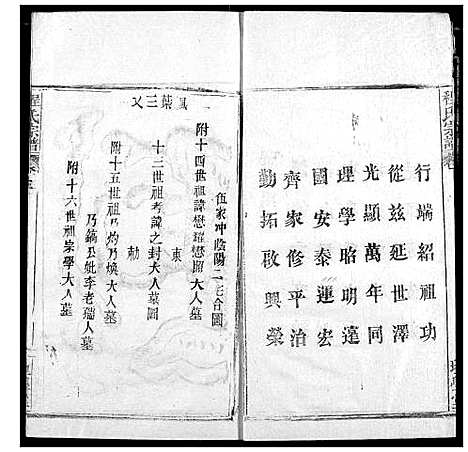 程氏宗譜
行端紹祖功
從茲延世澤
光顯萬年同
理學昭明達
國安泰運宏
齊家修平治
勤拓啟興榮
又三葉鳳
伍家冲陰陽二宅合圖
附十四世祖諱懋璀懋照大人墓
東
十三世祖考諱之封大人墓圖
勅
附十五世祖乃灼乃煥大人墓
乃鎬公妣李老瑞人墓
附十六世祖宗學大人墓
程氏宗譜